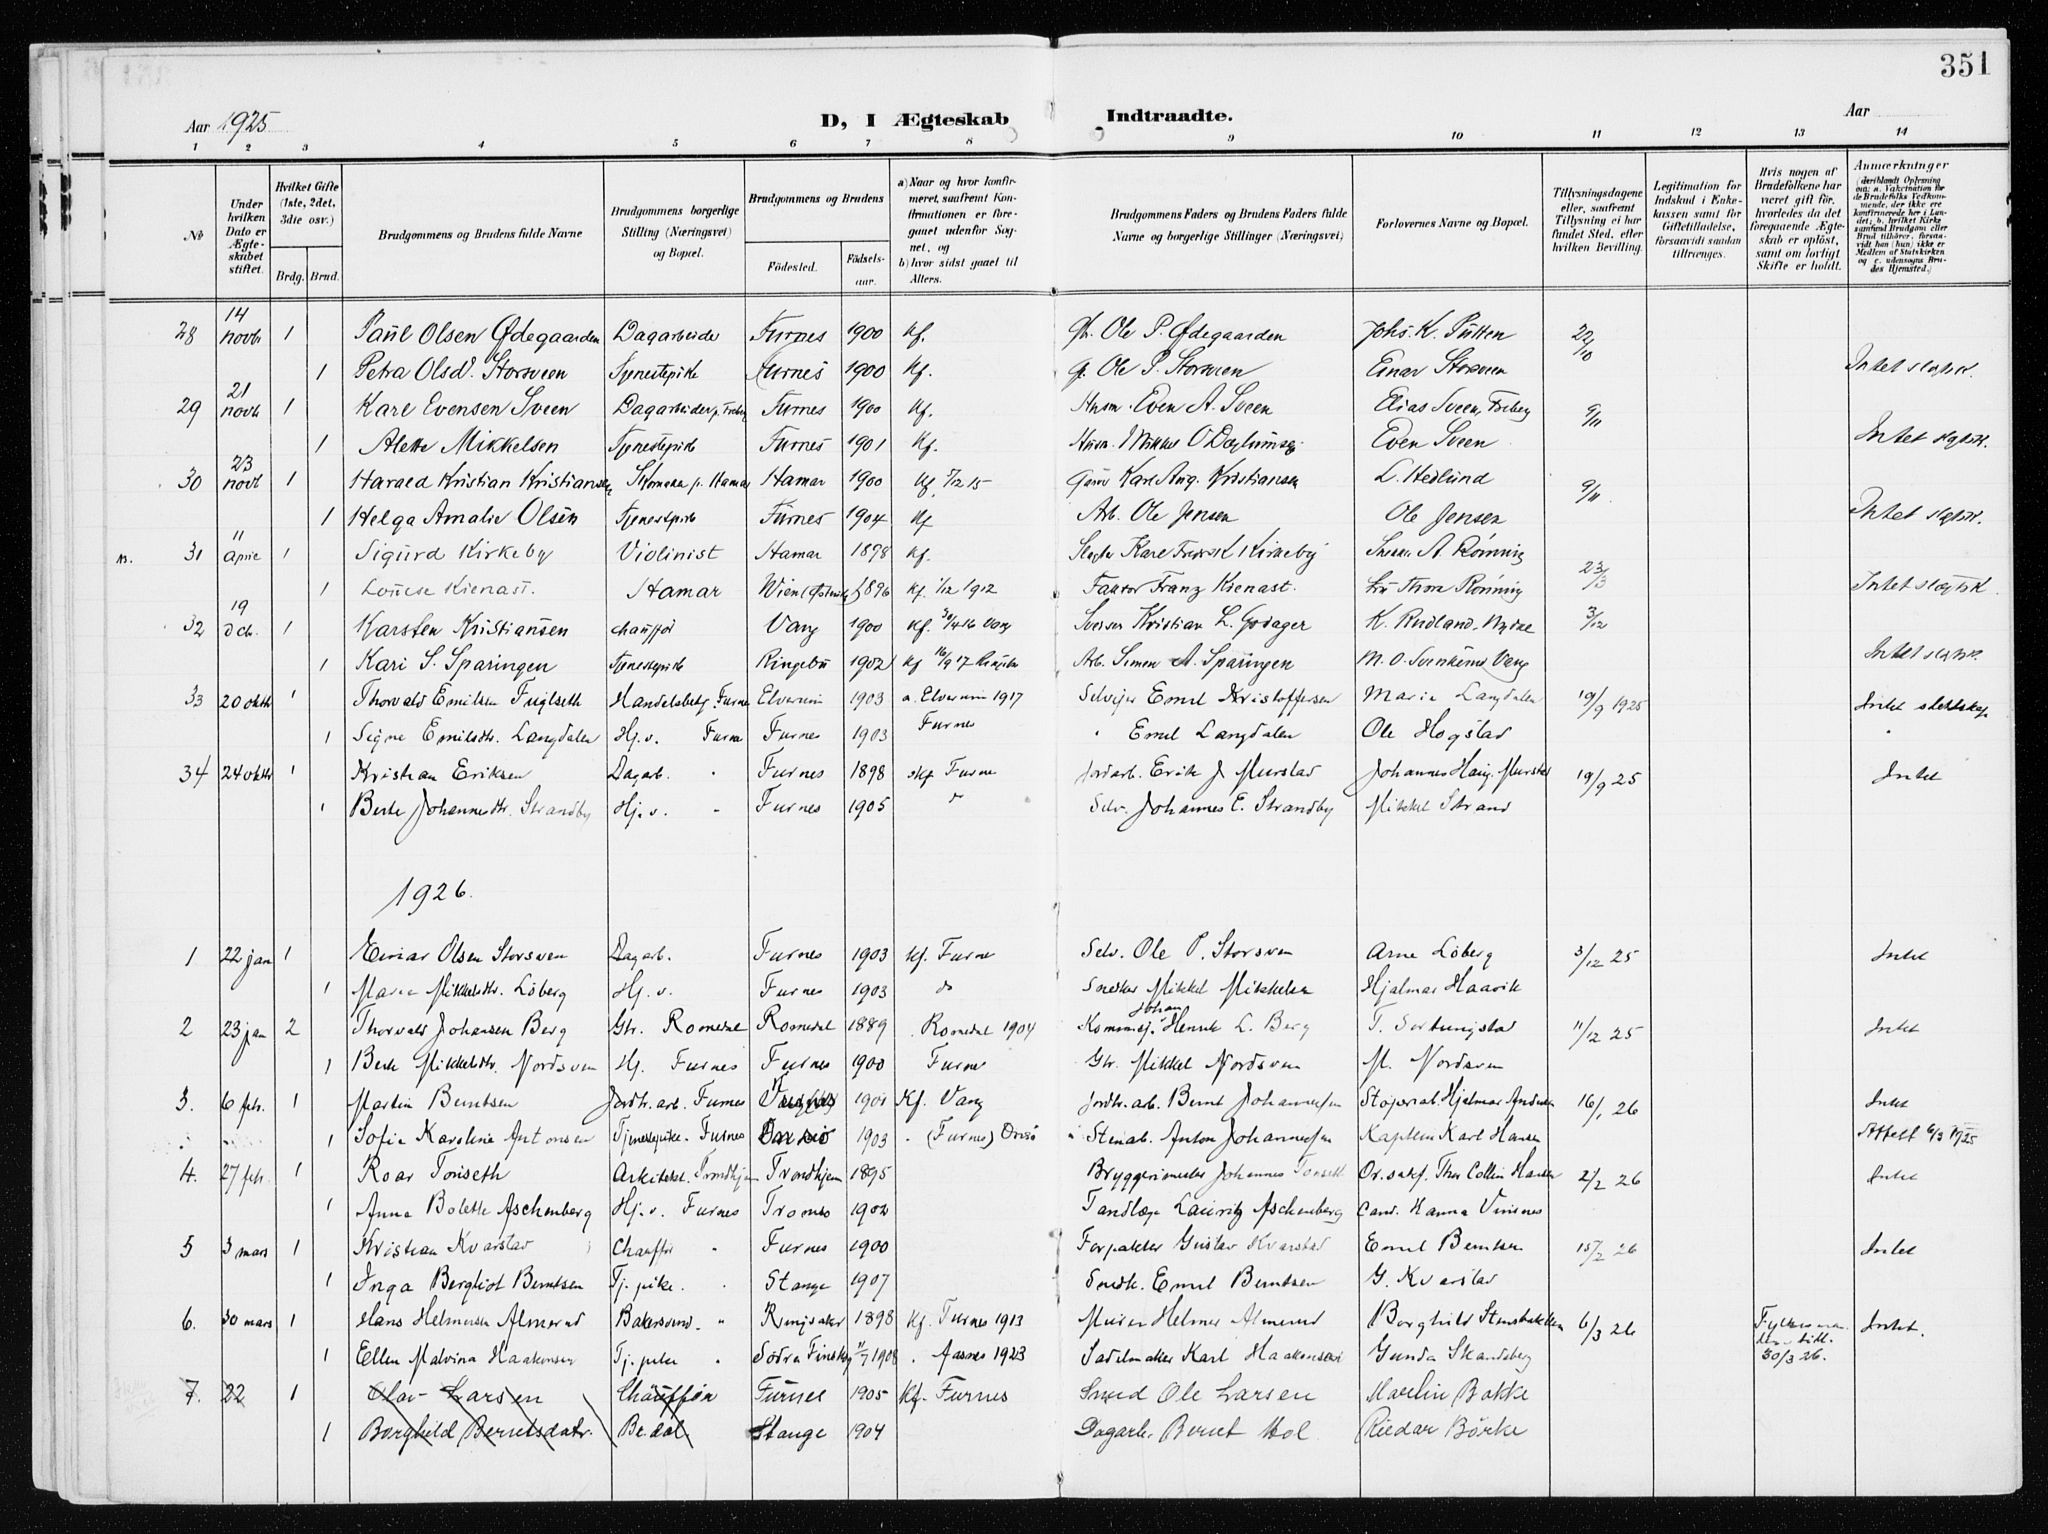 351
Aar 1925 D, I Ægteskab Indtraadte. Aar
1 2 3 4 5 6 7 8 9 10 11 12 13 14
No
Under hvilken Dato er Ægteskabet stiftet.
Hvilket Gifte (1ste, 2det, 3die osv.)
Brdg. Brud.
Brudgommens og Brudens fulde Navne
Brudgommens borgerlige Stilling (Næringsvei) og Bopæl.
Brudgommens og Brudens
Fødested. Fødselsaar.
a) Naar og hvor konfirmeret, saafremt Konfirmationen er foregaaet udenfor Sognet, og
b) hvor sidst gaaet til Alters.
Brudgommens Faders og Brudens Faders fulde Navne og borgerlige Stillinger (Næringsvei)
Forlovernes Navne og Bopæl.
Tillysningsdagene eller, saafremt Tillysning ei har fundet Sted, efter hvilken Bevilling.
Legitimation for Indskud i Enkekassen samt for Giftetilladelse, forsaavidt saadan tiltrænges.
Hvis nogen af Brudefolkene har været gift før, hvorledes da det foregaaende Ægteskab er opløst, samt om lovligt Skifte er holdt.
Anmærkninger (deriblandt Oplysning om: a. Vakcination for de Brudefolks Vedkommende, der ikke ere konfirmerede her i Landet; b. hvilket Kirkesamfund Brudgom eller Brud tilhører, forsaavidt han (hun) ikke er Medlem af Statskirken og c. udensogns Brudes Hjemsted.)
28 14 novb 1 Paul Olsen Ødegaarden Dagarbeide Furnes 1900 kf. Ole P. Ødegaarden Johs. K. Putten 22/10
1 Petra Olsd. Storsveen Tjenestepike Furnes 1900 kf. Ole P. Storsveen Einar Storsveen Intet slegtsk.
29 21 novb 1 Karl Evensen Sveen Dagarbeider Furnes 1900 kf. Husm. Even A. Sveen Elias Sveen, 9/11
1 Alette Mikkelsen Tjenestepike Furnes 1901 kf. Husm. Mikkel O Even Sveen Intet slegtsk.
30 23 novb 1 Harald Kristian Kristiansen Skomaker p. Hamar Hamar 1900 kf. 5/12 15 Karl Aug. Kristiansen L. Hedlund 9/11
1 Helga Amalie Olsen Tjenestepike Furnes 1904 kf Arb. Ole Jensen Ole Jensen Intet slegtsk.
31 11 April 1 Sigurd Kirkeby Violinist Hamar 1898 kf. Slagter Karl Fredrik Kirkeby A. Rønning 23/3
1 Louise Kienast. Hamar Wien (Østerrig) 1896 kf. 1/12 1912 Franz Kienast. Fru Thora Rønning Intet slegtsk.
32 19 dcb. 1 Karsten Kristiansen chauffør Vang 1900 kf. 30/4 16 Vang Sveiser Kristian L. Godager K. Rudland, 3/12
1 Kari S. Sparingen Tjenestepike Ringebu 1902 kf 16/9 17 Ringebu Arb. Simen A. Sparingen M. O. Vang Intet slegtsk.
33 20 oktb 1 Thorvald Emilsen Fuglseth Handelsbetj. Furnes Elverum 1903 a. Elverum 1917 Selveier Emil Kristoffersen Marie Langdalen 19/9 1925 Intet slektskap
1 Signe Emilsdtr. Langdalen Hj.v. Furnes Furnes 1903 Furnes " Emil Langdalen Ole Hogstad "
34 24 oktb 1 Kristian Eriksen Dagarb. " Furnes 1898 kf Furnes Jordarb. Erik J Murstad Johannes Haug. Murstad 19/9 25 Intet
1 Berte Johannesdtr. Strandby Hj.v. " Furnes 1905 " Selv. Johannes E. Strandby Mikkel Strand
1926.
1 22 jan 1 Einar Olsen Storsveen Dagarb. Furnes 1903 kf. Furnes Selv. Ole P. Storsveen Arne Løberg 3/12 25 Intet
1 Marie Mikkelsdtr. Løberg Hj.v. Furnes 1903 do Snedker Mikkel Mikkelsen Hjalmar Haavik
2 23 jan 2 Thorvald Johansen Berg Gbr. Romedal Romedal 1889 Romedal 1904 Johan Henrik L. Berg T. Sortungstad 11/12 25 Intet
1 Berte Mikkelsdtr. Nordsveen Hj. Furnes Furnes 1900 Furnes Gbr. Mikkel Nordsveen M. Nordsveen
3. 6 feb. 1 Martin Berntsen Jordbr. arb. Furnes Vang 1901 Kf. Vang Jordbr. arb. Bernt Johannessen Hjalmar Andersen 16/1 26 Intet
1 Sofie Karoline Antonsen Tjenestepike. Furnes 1903 " (Furnes) Stenarb. Anton Johannessen Kaptein Karl Hansen Attest 6/3 1925
4. 27 feb. 1 Roar Tønseth Arkitekt. Trondhjem Trondhjem 1895 Bryggerimester Johannes Tønseth Or.sakf. Thor Collin Hansen 2/2 26 Intet
1 Anna Bolette Aschenberg Hj.v. Furnes Tromsø 1902 Tandlæge Lauritz Aschenberg Cand. Hanna Vinsnes
5 3 mars 1 Kristian Kvarstad Chauffør " Furnes 1900 Forpakter Gustav Kvarstad Emil Berntsen 15/2 26 Intet
1 Inga Bergliot Berntsen Tj. pike. " Stange 1907 Snedk. Emil Berntsen G. Kvarstad
6. 30 mars 1 Hans Helmersen Almerud Bakersvend. " Ringsaker 1898 Kf. Furnes 1913 Murer Helmer Almerud Borghild Stensbakken 6/3 26 Fylkesmanden- bill. 30/3 26. Intet.
1 Ellen Malvina Haakensen Tj. pike " Södra Finskog 11/7 1908 " Aasnes 1923 Sadelmaker Karl Haakensen Gunda Skandsberg
7. 22 1 Olav Larsen Chauffør Furnes 1905 Kf. Furnes Smed Ole Larsen Martin Bakke
1 Borghild Berntsdatr. Bedal Stange 1904 Dagarb. Bernt Hol Reidar Børke